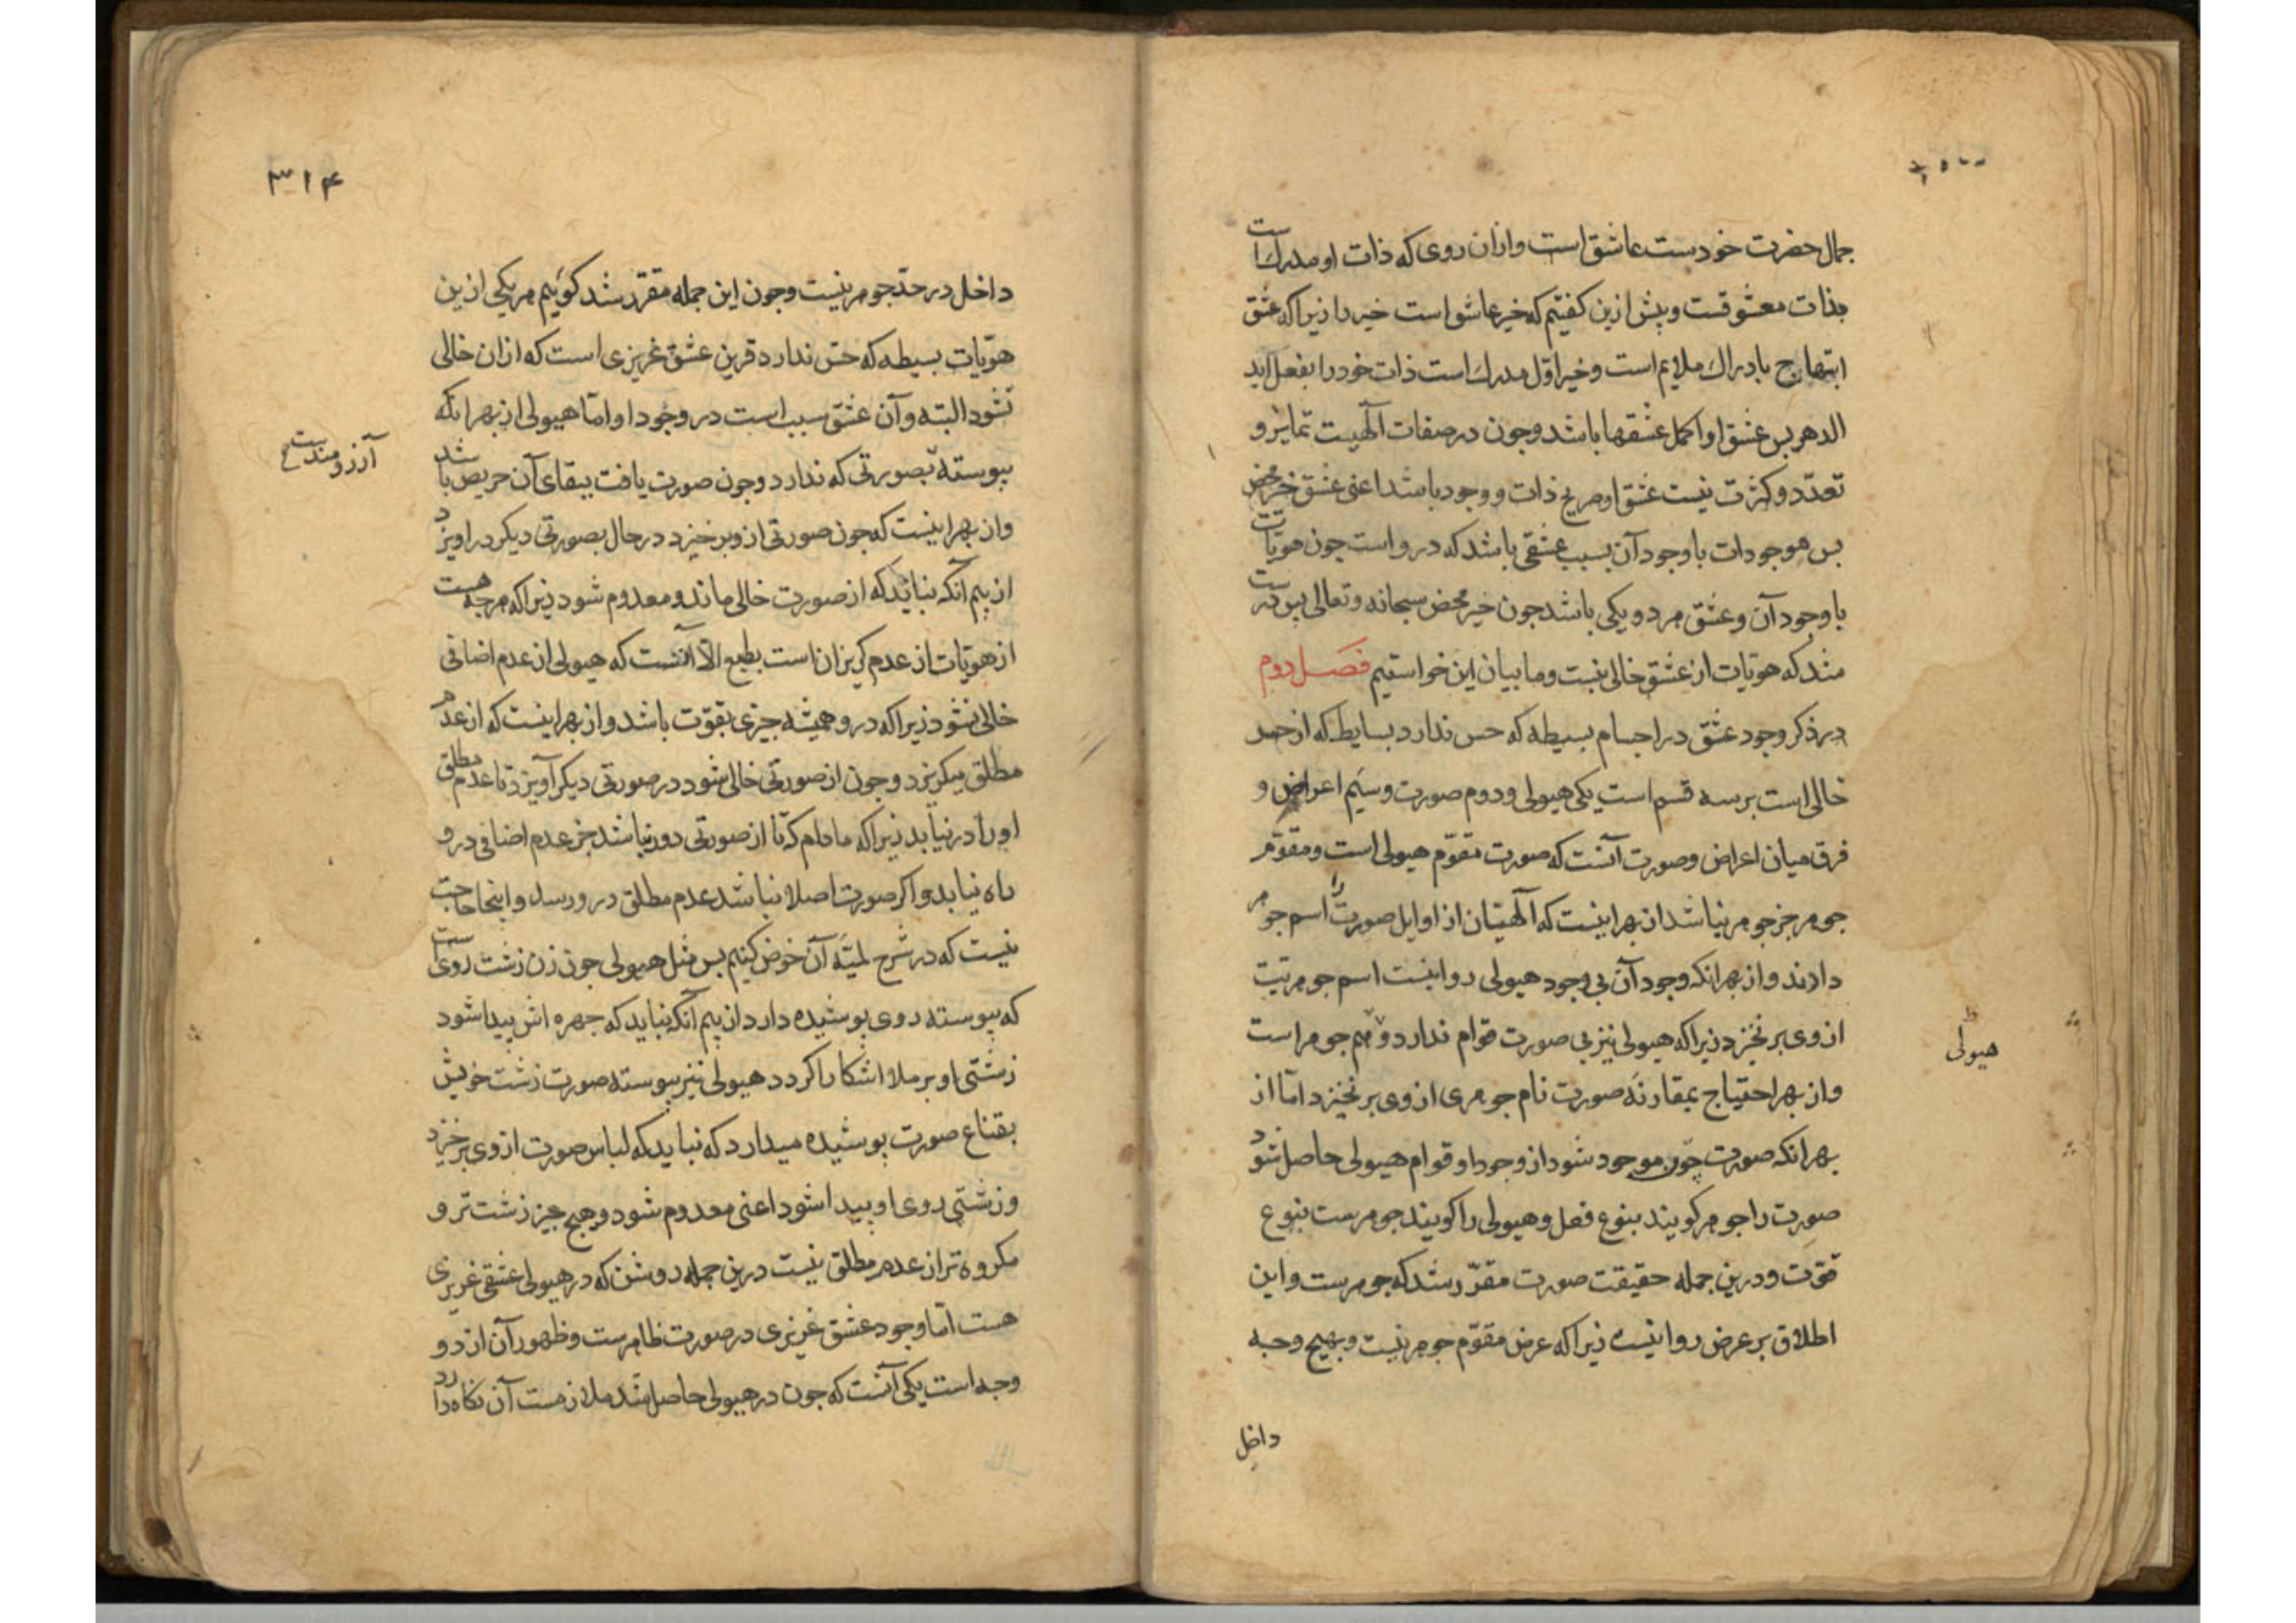 جمال حضرت خودست عاشق است وازان روی که ذات او مدرک است
بذات معشوقست وپیش ازین کفتیم که خیر عاشق است خیر را زیرا که عشق
ابتهاج بادراک ملایم است وخیر اوّل مدرک است ذات خود را بفعل ابد
الدهر بس عشق او اکمل عشقها باشد وجون در صفات الٓهیت تمایز و
تعدّد وکثرت نیست عشق او صریح ذات و وجود باشد اعنی عشق خیر محض
بس موجودات با وجود آن بسبب عشقی باشد که درو است جون هویّات
با وجود آن وعشق هر دو یکی باشد جون خیر محض سبحانه وتعالی بس درست
شد که هویّات از عشق خالی نیست وما بیان این خواستیم فصل دوم
در ذکر وجود عشق در اجسام بسیطه که حس ندارد بسایط که از حس
خالی است بر سه قسم است یکی هیولی ودوم صورت وسیّم اعراض و
فرق میان اعراض وصورت آنست که صورت مقوّم هیولی است ومقوّم
جوهر جز جوهر نباشد از بهر اینست که الٓهیّان از اوایل صورت را اسم جوهر
دادند واز بهر انکه وجود آن بی وجود هیولی روا نیست اسم جوهریّت
از وی بر نخیزد زیرا که هیولی نیز بی صورت قوام ندارد وهم جوهر است
هیولی
واز بهر احتیاج بمقارنهٔ صورت نام جوهری از وی بر نخیزد امّا از
بهر انکه صورت جون موجود شود از وجود او قوام هیولی حاصل شود
صورت را جوهر کویند بنوع فعل وهیولی را کویند جوهرست بنوع
قوّت ودرین جمله حقیقت صورت مقرّر شد که جوهرست واین
اطلاق بر عرض روا نیست زیرا که عرض مقوّم جوهر نیست وبهیج وجه
داخل
۳۱۴
داخل در حدّ جوهر نیست وجون این جمله مقرّر شد کوئیم هر یکی ازین
هویّات بسیطه که حسّ ندارد قرین عشق غریزی است که ازان خالی
نشود البته وآن عشق سبب است در وجود او امّا هیولی از بهر انکه
پیوسته بصورتی که ندارد وجون صورت یافت ببقای آن حریص باشد
آرزومندست
واز بهر اینست که جون صورتی ازو برخیزد در حال بصورتی دیکر در اویزد
از بیم آنکه نباید که از صورت خالی ماند ومعدوم شود زیرا که هرجه هست
از هویّات از عدم کریزان است بطبع الّا آنست که هیولی از عدم اضافی
خالی نشود زیرا که درو همیشه جیزی بقوّت باشد واز بهر اینست که از عدم
مطلق میکریزد وجون از صورتی خالی شود در صورتی دیکر آویزد تا عدم مطلق
او را در نیابد زیرا که مادام که تا از صورتی دور نباشد جز عدم اضافی درو
راه نیابد واکر صورت اصلا نباشد عدم مطلق درو رسد واینجا حاجت
نیست که در شرح لمّیّهٔ آن خوض کنیم بس مثل هیولی جون زن زشت روی است
که پیوسته روی پوشیده دارد از بیم آنکه نباید که جهره اش پیدا شود
زشتی او بر ملا اشکارا کردد هیولی نیز پیوسته صورت زشت خویش
بقناع صورت پوشیده میدارد که نباید که لباس صورت از وی برخیزد
وزشتی روی او پیدا شود اعنی معدوم شود وهیج جیز زشت تر و
مکروه تر از عدم مطلق نیست درین جمله روشن که در هیولی عشقی غریزی
هست امّا وجود عشق غریزی در صورت ظاهرست وظهور آن از دو
وجه است یکی آنست که جون در هیولی حاصل شد ملازمت آن نکاه دارد